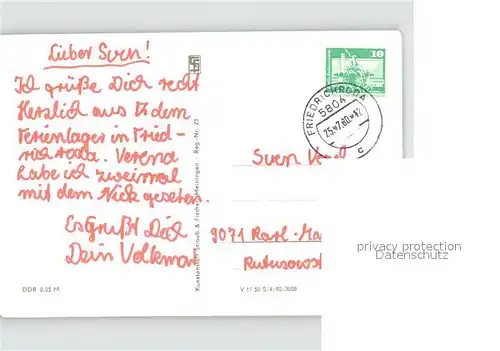 Lieber Sven!
Ich grüße Dich recht
Herzlich aus dem
Ferienlager in Fried-
richroda. Verena
habe ich zweimal
mit dem Nick gesehen.
Es Grüßt Dich
Dein Volkmar
DDR 0,25 M
Kunstanstalt Straub & Fischer, Meiningen - Reg.-Nr. 25
V 11 50 S/4/80/3008
10
FRIEDRICHRODA
5804
25.-7.80.-12
c
Sven
9071 Karl-Ma
privacy protection
Datenschutz